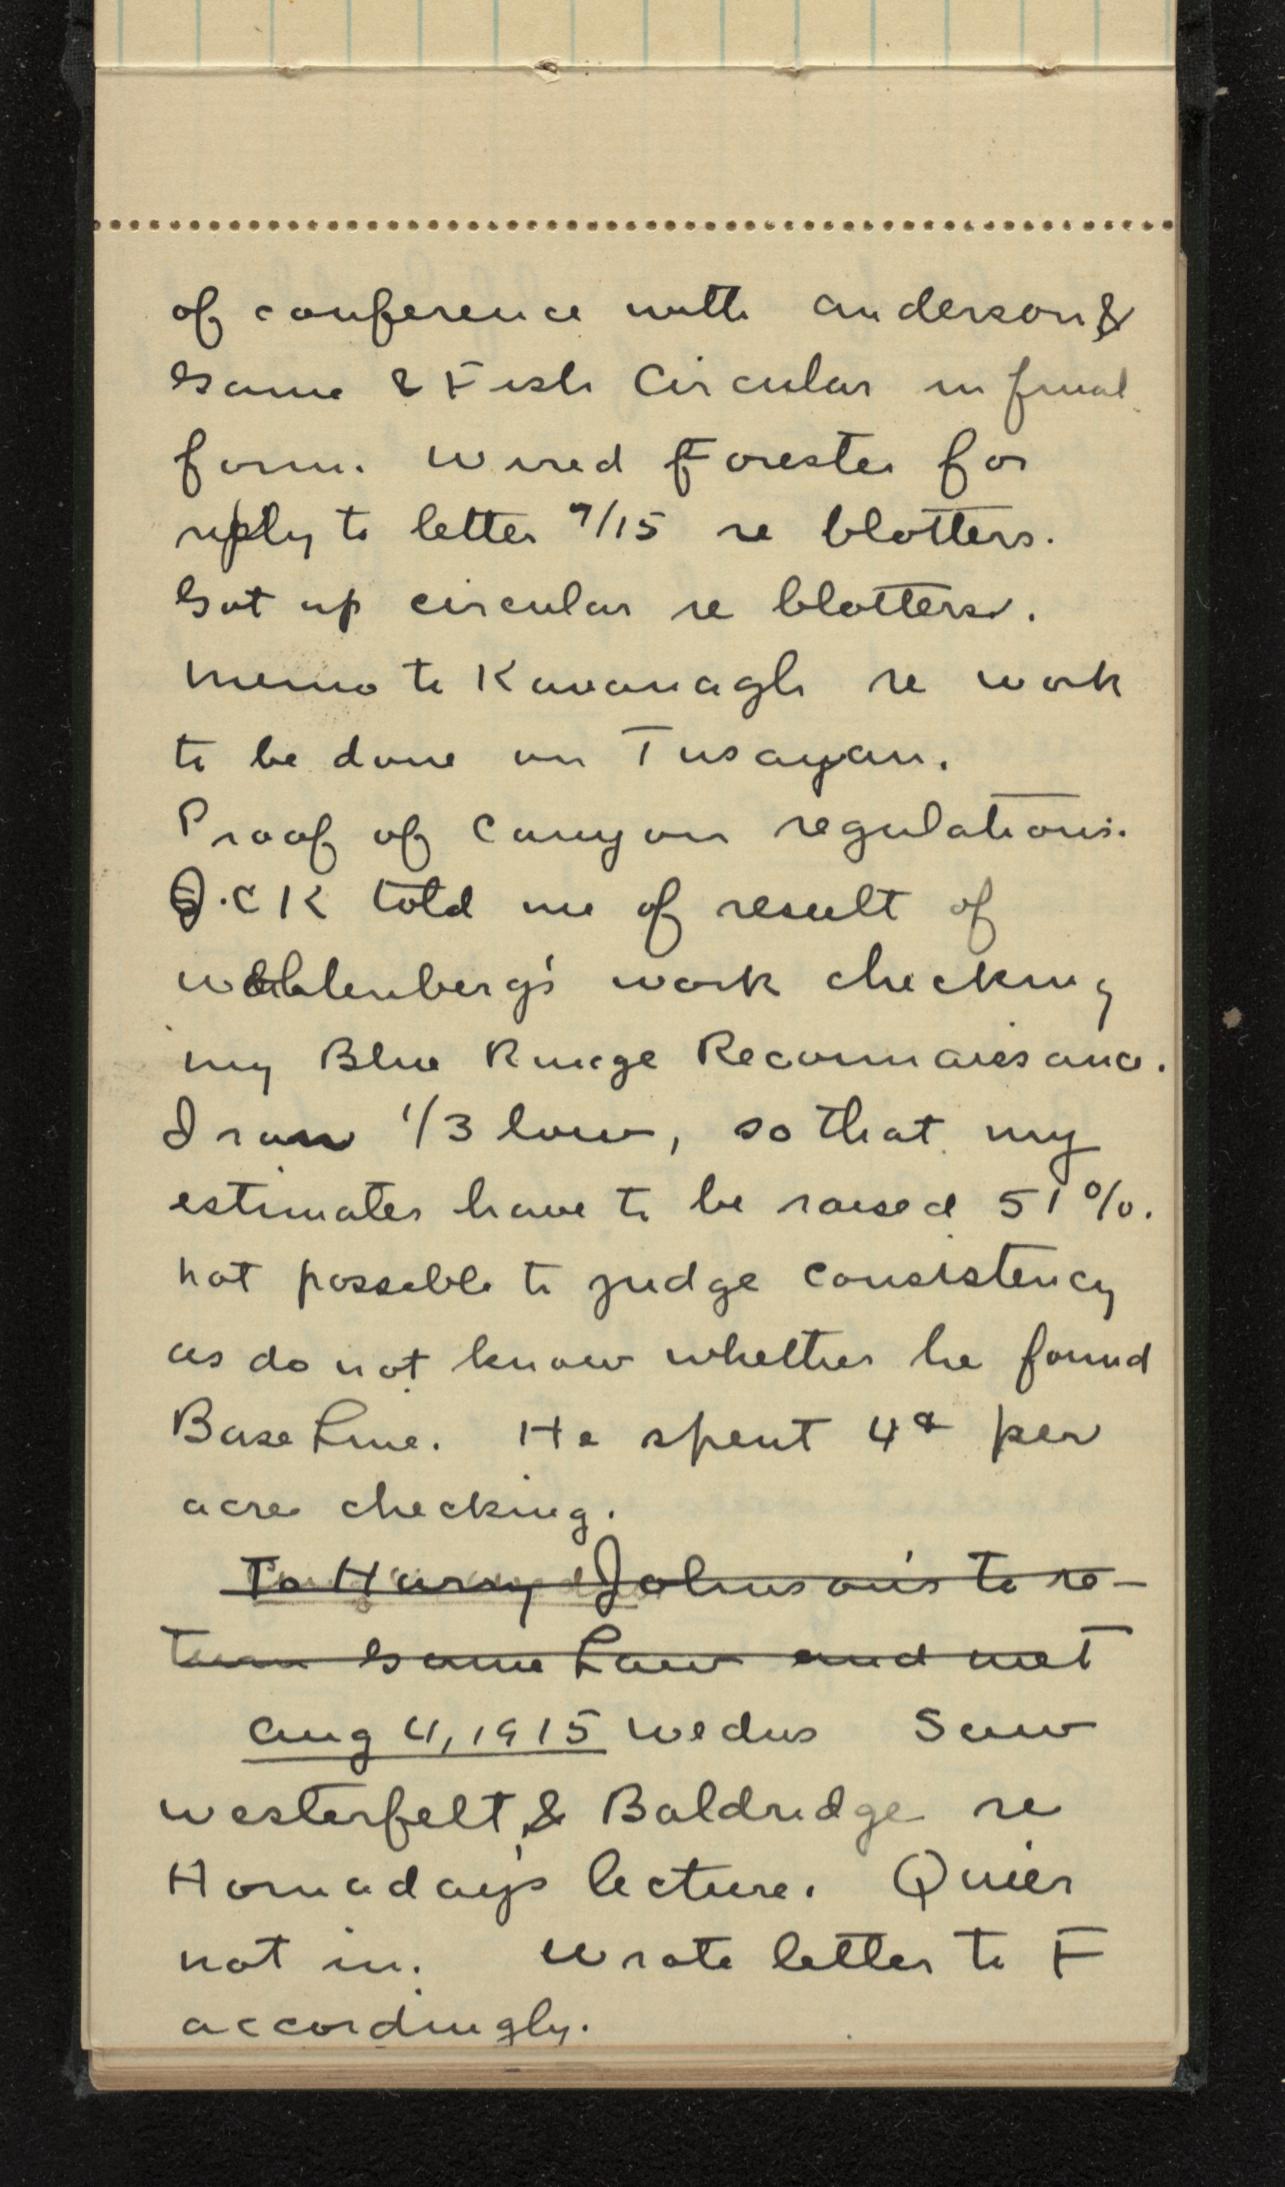 of conference with Anderson &
Game & Fish Circular in final
form. Wired Forester for
reply to letter 7/15 re blotters.
Got up circular re blotters.
Memo to Kavanagh re work
to be done on Tusayan.
Proof of Canyon regulations.
J.C K told me of result of
Wohlenberg's work checking
my Blue Range Reconnaissance.
I ran 1/3 low, so that my
estimates have to be raised 51%.
Not possible to judge consistency
as do not know whether he found
Base Line. He spent 4¢ per
acre checking.
To Harry Johnson's to re-
turn Game Law and met
Aug 4, 1915 Wednes Saw
Westerfelt & Baldridge re
Hornaday's lecture. Quier
not in. Wrote letter to F
accordingly.